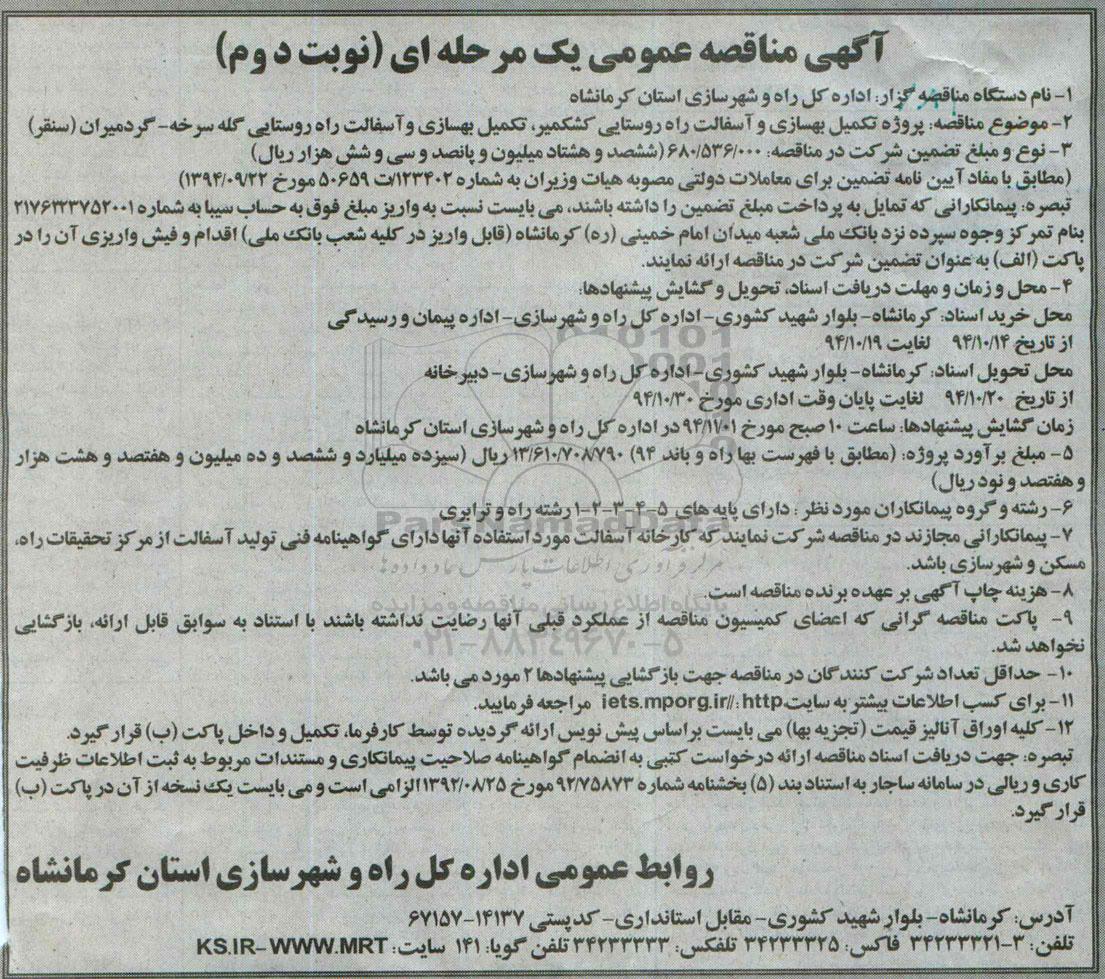 آگهی مناقصه عمومی یک مرحله ای (نوبت دوم)
۱- نام دستگاه مناقصه گزار: اداره کل راه و شهرسازی استان کرمانشاه
۲- موضوع مناقصه: پروژه تکمیل بهسازی و آسفالت راه روستایی کشکمیر، تکمیل بهسازی و آسفالت راه روستایی گله سرخه- گردمیران (سنقر)
۳- نوع و مبلغ تضمین شرکت در مناقصه: ۶۸۰/۵۳۶/۰۰۰ (ششصد و هشتاد میلیون و پانصد و سی و شش هزار ریال)
(مطابق با مفاد آیین نامه تضمین برای معاملات دولتی مصوبه هیات وزیران به شماره ۱۲۳۴۰۲/ت ۵۰۶۵۹ مورخ ۱۳۹۴/۰۹/۲۲)
تبصره: پیمانکارانی که تمایل به پرداخت مبلغ تضمین را داشته باشند، می بایست نسبت به واریز مبلغ فوق به حساب سیبا به شماره
بنام تمرکز وجوه سپرده نزد بانک ملی شعبه میدان امام خمینی (ره) کرمانشاه (قابل واریز در کلیه شعب بانک ملی) اقدام و فیش واریزی آن را در
پاکت (الف) به عنوان تضمین شرکت در مناقصه ارائه نمایند.
۴- محل و زمان و مهلت دریافت اسناد، تحویل و گشایش پیشنهادها:
محل خرید اسناد: کرمانشاه- بلوار شهید کشوری- اداره کل راه و شهرسازی- اداره پیمان و رسیدگی
از تاریخ ۹۴/۱۰/۱۴ لغایت ۹۴/۱۰/۱۹
محل تحویل اسناد: کرمانشاه- بلوار شهید کشوری- اداره کل راه و شهرسازی- دبیرخانه
از تاریخ ۹۴/۱۰/۲۰ لغایت پایان وقت اداری مورخ ۹۴/۱۰/۳۰
زمان گشایش پیشنهادها: ساعت ۱۰ صبح مورخ ۹۴/۱۱/۰۱ در اداره کل راه و شهرسازی استان کرمانشاه
۵- مبلغ برآورد پروژه: (مطابق با فهرست بها راه و باند ۹۴) ۱۳/۶۱۰/۷۰۸/۷۹۰ ریال (سیزده میلیارد و ششصد و ده میلیون و هفتصد و هشت هزار
و هفتصد و نود ریال)
۶- رشته و گروه پیمانکاران مورد نظر : دارای پایه های ۵-۴-۳-۲-۱ رشته راه و ترابری
۷- پیمانکارانی مجازند در مناقصه شرکت نمایند که کارخانه آسفالت مورد استفاده آنها دارای گواهینامه فنی تولید آسفالت از مرکز تحقیقات راه،
مسکن و شهرسازی باشد.
۸- هزینه چاپ آگهی بر عهده برنده مناقصه است.
۹- پاکت مناقصه گرانی که اعضای کمیسیون مناقصه از عملکرد قبلی آنها رضایت نداشته باشند با استناد به سوابق قابل ارائه، بازگشایی
نخواهد شد.
۱۰- حداقل تعداد شرکت کنندگان در مناقصه جهت بازگشایی پیشنهادها ۲ مورد می باشد.
۱۱- برای کسب اطلاعات بیشتر به سایت http://iets.mporg.ir مراجعه فرمایید.
۱۲- کلیه اوراق آنالیز قیمت (تجزیه بها) می بایست براساس پیش نویس ارائه گردیده توسط کارفرما، تکمیل و داخل پاکت (ب) قرار گیرد.
تبصره: جهت دریافت اسناد مناقصه ارائه درخواست کتبی به انضمام گواهینامه صلاحیت پیمانکاری و مستندات مربوط به ثبت اطلاعات ظرفیت
کاری و ریالی در سامانه ساجار به استناد بند (۵) بخشنامه شماره ۹۲/۷۵۸۷۳ مورخ ۱۳۹۲/۰۸/۲۵ الزامی است و می بایست یک نسخه از آن در پاکت (ب)
قرار گیرد.
روابط عمومی اداره کل راه و شهرسازی استان کرمانشاه
آدرس: کرمانشاه- بلوار شهید کشوری- مقابل استانداری- کدپستی ۱۴۱۳۷-۶۷۱۵۷
تلفن: ۳-۳۴۲۳۳۳۲۱ فاکس: ۳۴۲۳۳۳۲۵ تلفکس: ۳۴۲۳۳۳۳۳ تلفن گویا: ۱۴۱ سایت: KS.IR- WWW.MRT
ParsNamadData
پایگاه اطلاع رسانی مناقصه و مزایده
۰۲۱-۸۸۳۴۹۶۷۰-۵